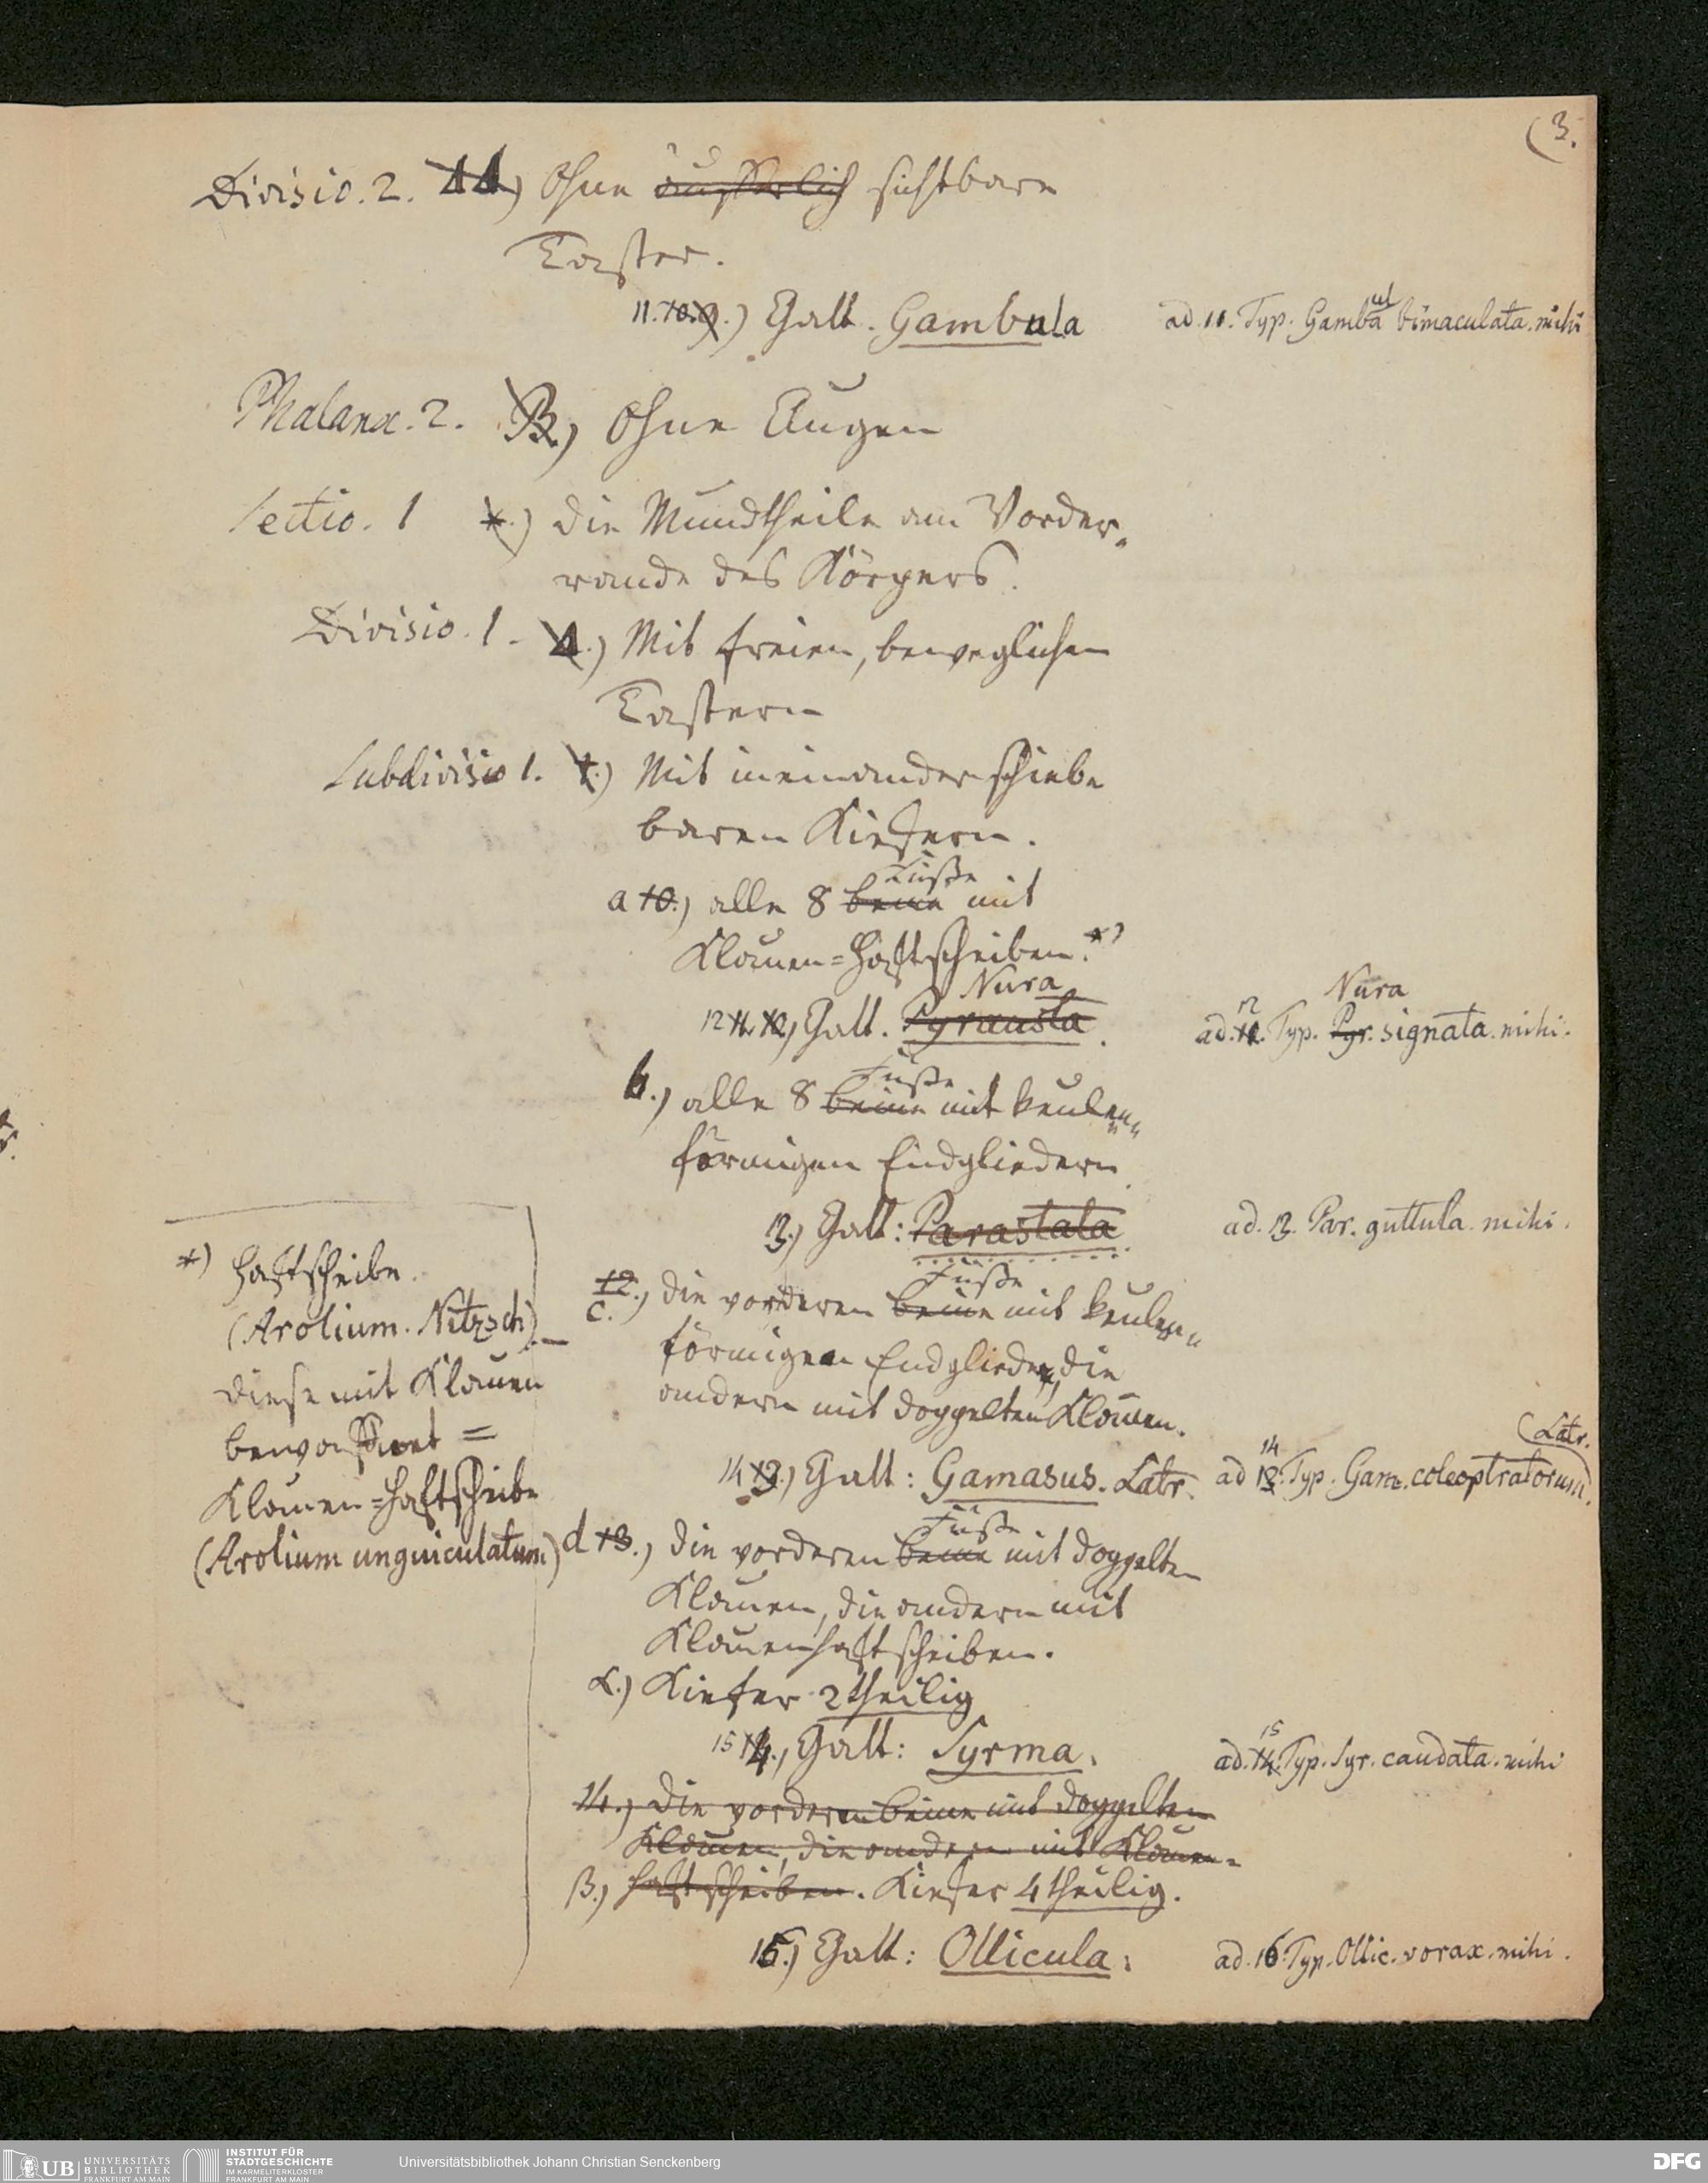 (3.
Divisio. 2. ΔΔ) Ohne äusserlich sichtbare
Taster.
11. 10. 9.) Gatt. Gambula
ad. 11. Typ. Gambula bimaculata. mihi
Phalanx. 2. B.) Ohne Augen
Sectio. 1 *.) Die Mundtheile am Vorder-
rande des Körpers.
Divisio. 1. Δ.) Mit freien, beweglichen
Tastern
Subdivisio 1. †.) Mit ineinander schieb-
baren Kiefern.
Füße
a 10.) alle 8 beine mit
Klauen=Haftscheiben.*)
Nura
12 11. Gatt. Pyrausta.
Nura
12
ad. 11. Typ. Pyr. signata. mihi.
Füße
b.) alle 8 beine mit keulen-
förmigen Endgliedern.
13.) Gatt: Parastata
ad. 13. Par. guttula. mihi.
Füße
12.) c. Die vorderen beine mit keulen-
förmigen Endgliedern, die
andern mit doppelten Klauen.
14 13.) Gatt: Gamasus. Latr.
(Latr.
14
ad 13. Typ. Gam. coleoptratorum.
Füße
d 13.) die vorderen beine mit doppelten
Klauen, die andern mit
Klauenhaftscheiben.
α.) Kiefer 2theilig
15 14., Gatt: Syrma.
15
ad. 14. Typ. Syr. caudata. mihi
14.) Die vorderen beine mit doppelten
Klauen, die andern mit Klauen-
β.) haftscheiben. Kiefer 4theilig.
16.) Gatt: Ollicula.
ad. 16. Typ. Ollic. vorax. mihi.
*) Haftscheibe.
(Arolium. Nitzsch). —
diese mit Klauen
bewaffnet =
Klauen=Haftscheibe
(Arolium unguiculatum)
UB UNIVERSITÄTS
BIBLIOTHEK
FRANKFURT AM MAIN
INSTITUT FÜR
STADTGESCHICHTE
IM KARMELITERKLOSTER
FRANKFURT AM MAIN
Universitätsbibliothek Johann Christian Senckenberg
DFG